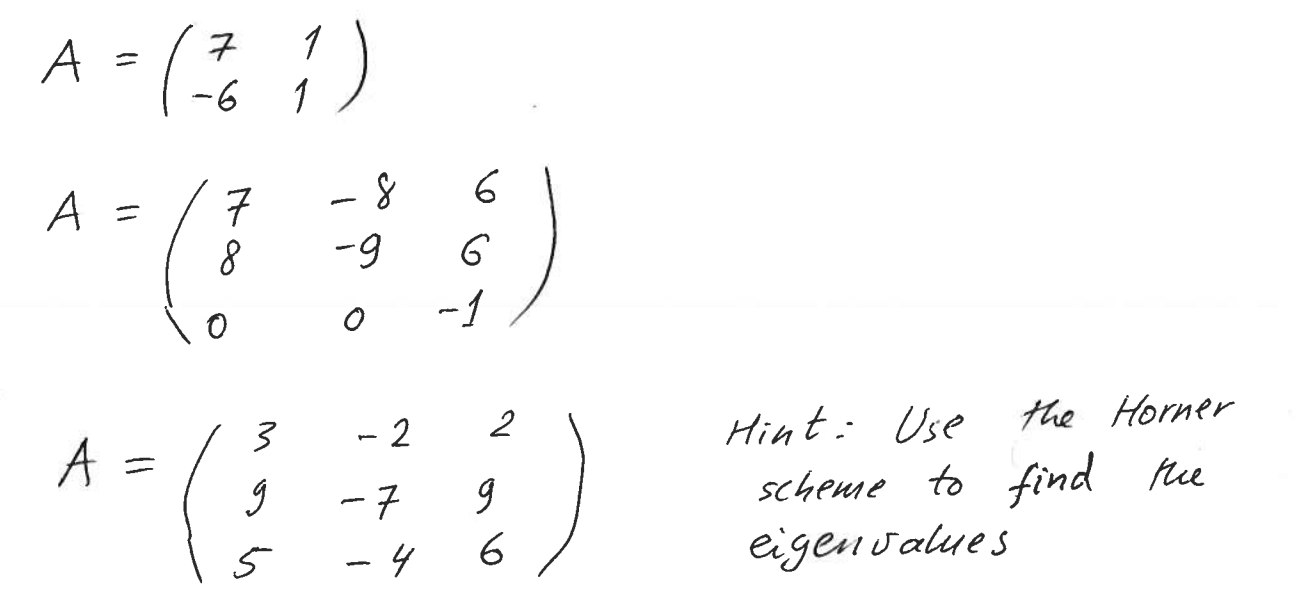 A = ( 7 1
-6 1 )
A = ( 7 -8 6
8 -9 6
0 0 -1 )
A = ( 3 -2 2
9 -7 9
5 -4 6 )
Hint: Use the Horner
scheme to find the
eigenvalues